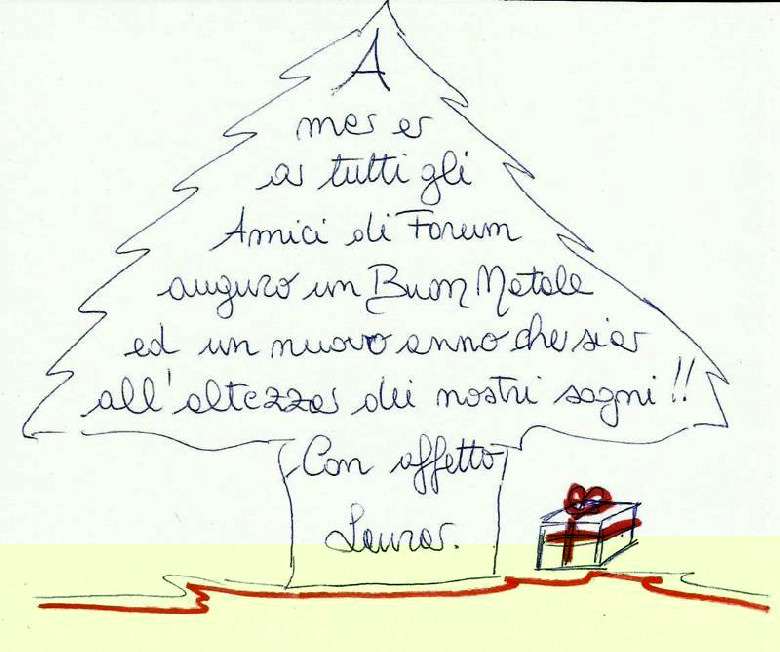 A
me e
a tutti gli
Amici di Forum
auguro un Buon Natale
ed un nuovo anno che sia
all'altezza dei nostri sogni!!
Con affetto
Laura.